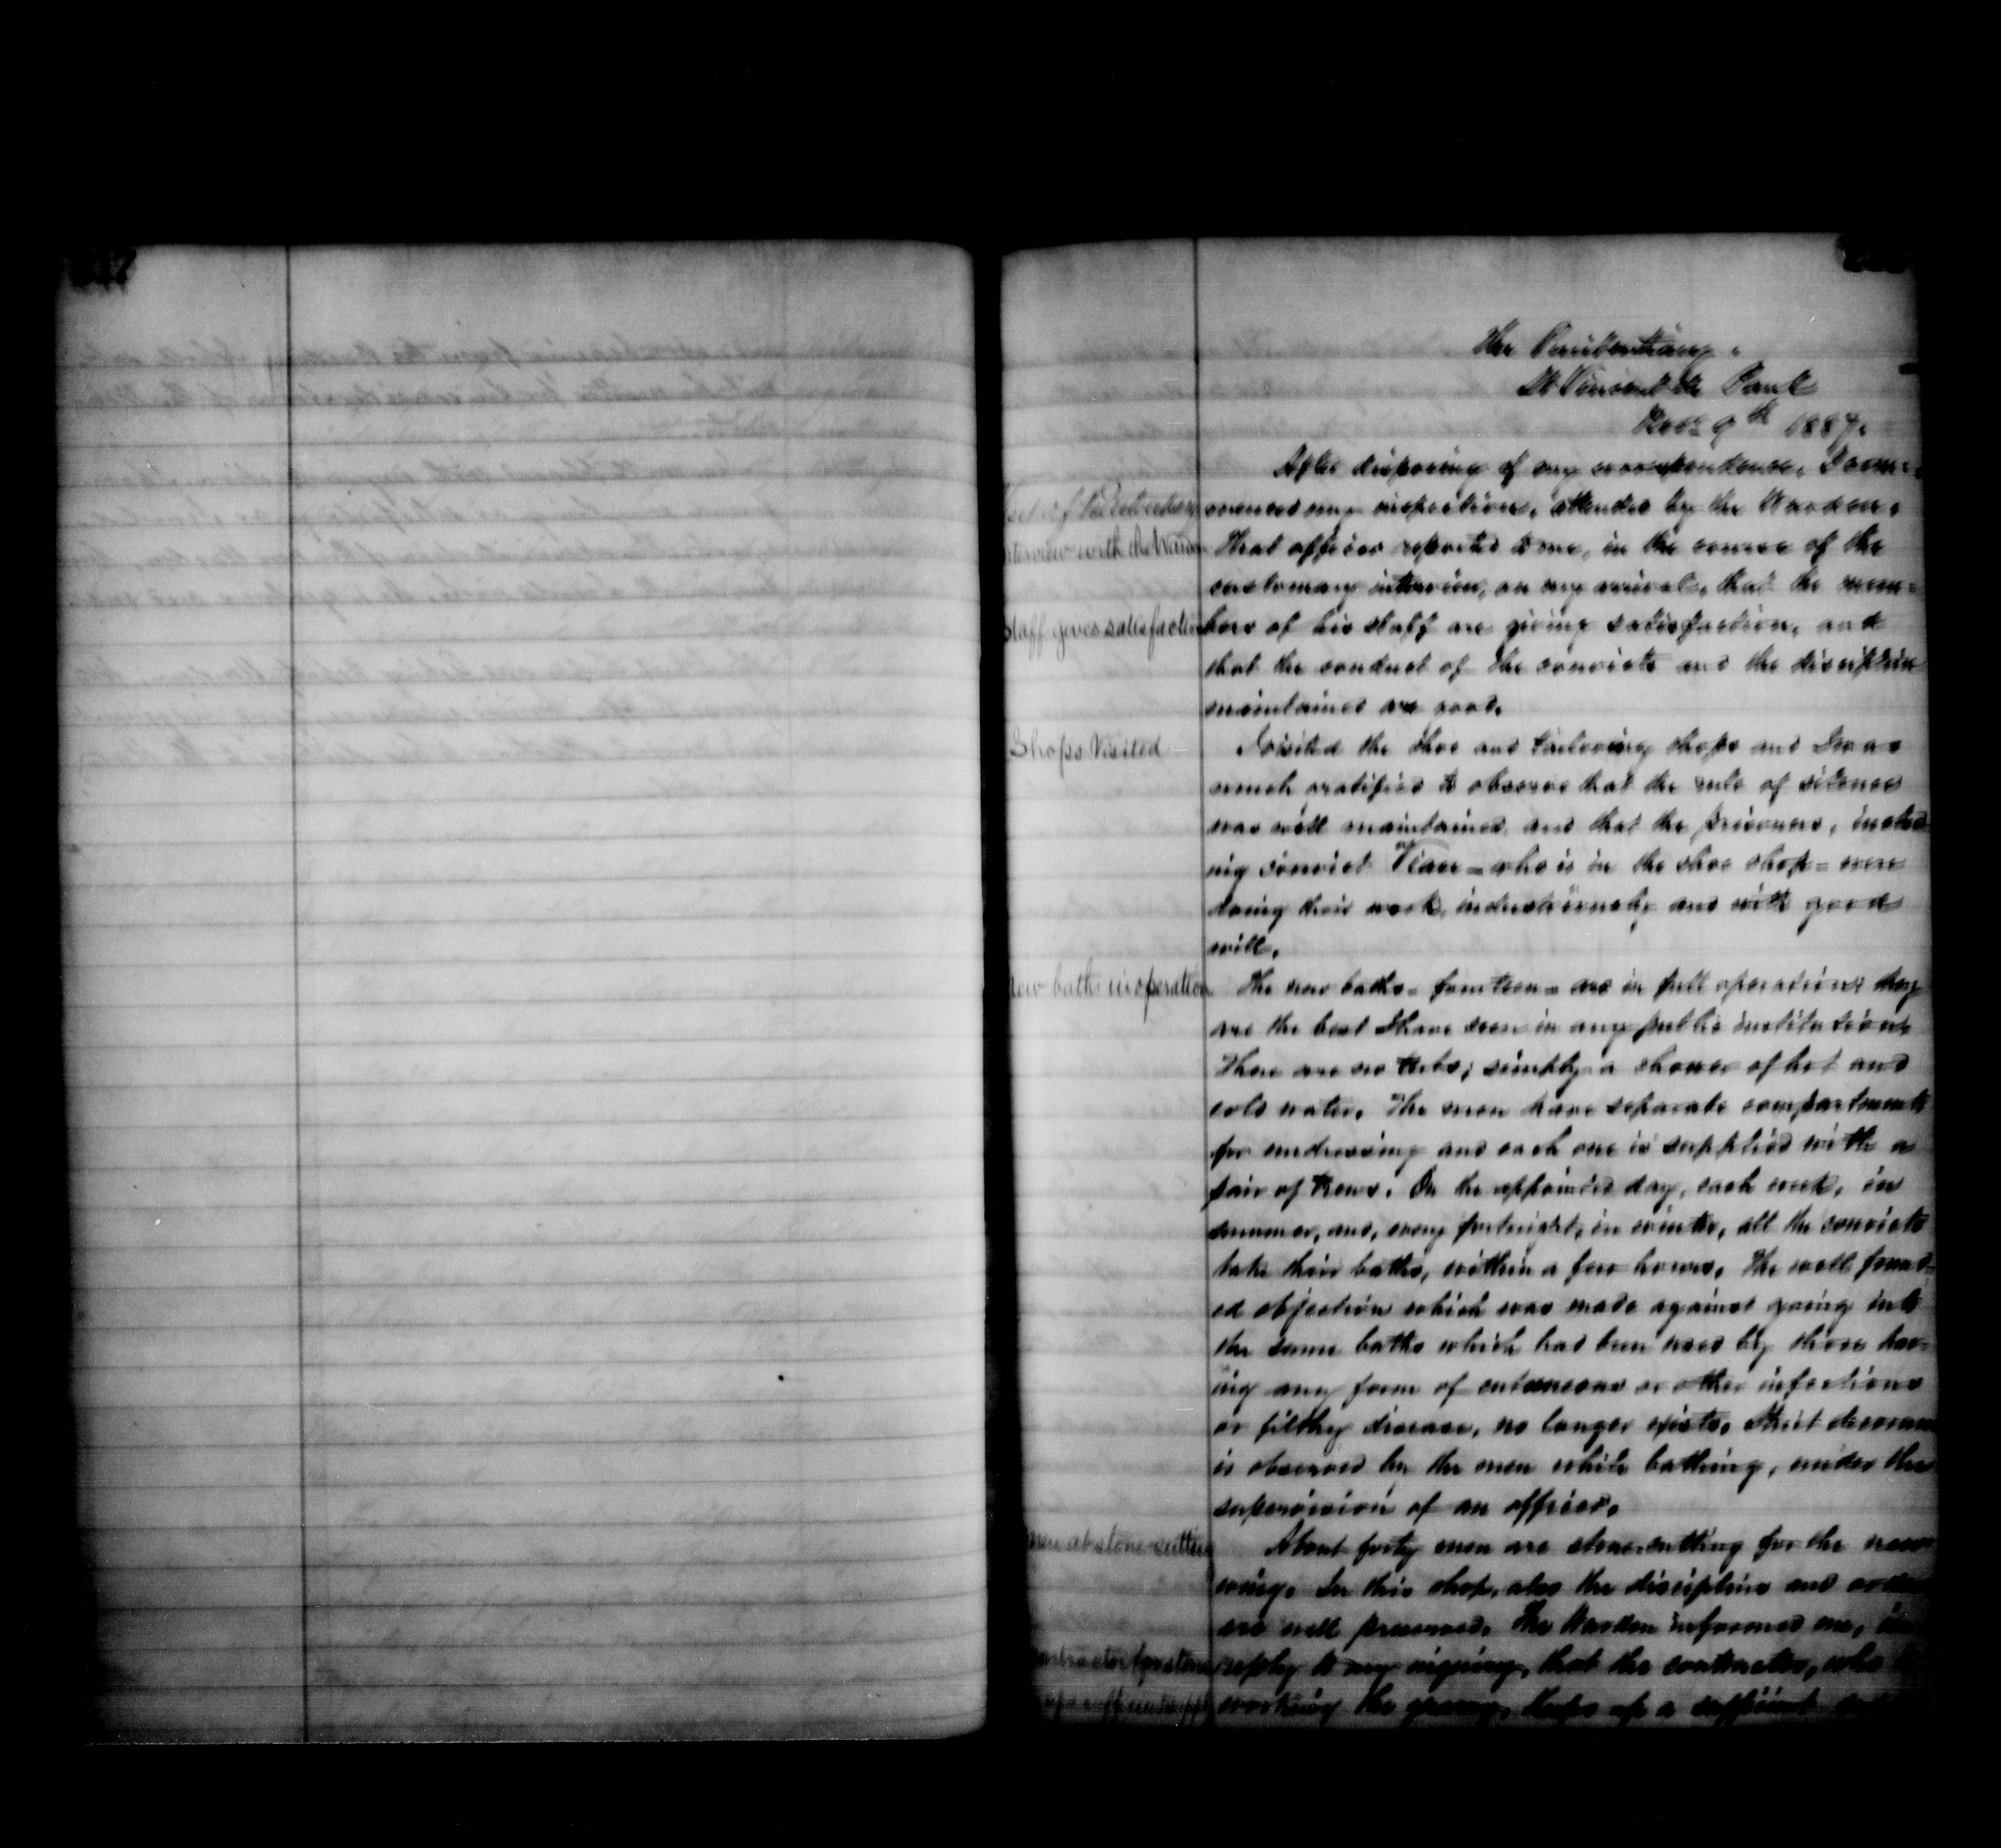 The Penitentiary.
St Vincent de Paul
9th 1887.
After disposing of my correspondence, I com-
menced my inspection, attended by the Warden.
Interview with the Warden
That officer reported to me, in the course of the
customary interview, on my arrival, that the mem-
Staff gives satisfaction
bers of his staff are giving satisfaction, and
that the conduct of the convicts and the discipline
maintained are good.
Shops Visited
I visited the shoe and tailoring shops and I was
much gratified to observe that the rule of silence
was well maintained and that the prisoners, includ-
ing convict who is in the shoe shop - were
doing their work, industriously and with good
will.
New baths in operation
The new baths - fourteen - are in full operation; they
are the best I have seen in any public institution
There are no tubs; simply a shower of hot and
cold water. The men have separate compartments
for undressing and each one is supplied with a
pair of trews. On the appointed day, each week, in
summer, and, every fortnight, in winter, all the convicts
take their baths, within a few hours. The well found-
ed objection which was made against going into
the same baths which had been used by those hav-
ing any form of cutaneous or other infectious
or filthy disease, no longer exists. Strict decorum
is observed by the men while bathing, under the
supervision of an officer.
men at stone-cutting
About forty men are stone-cutting for the new
wing. In this shop, also the discipline and order
are well preserved. The Warden informed me, in
Contractor for stone
reply to my inquiry, that the contractor, who
working the quarry, keeps up a sufficient